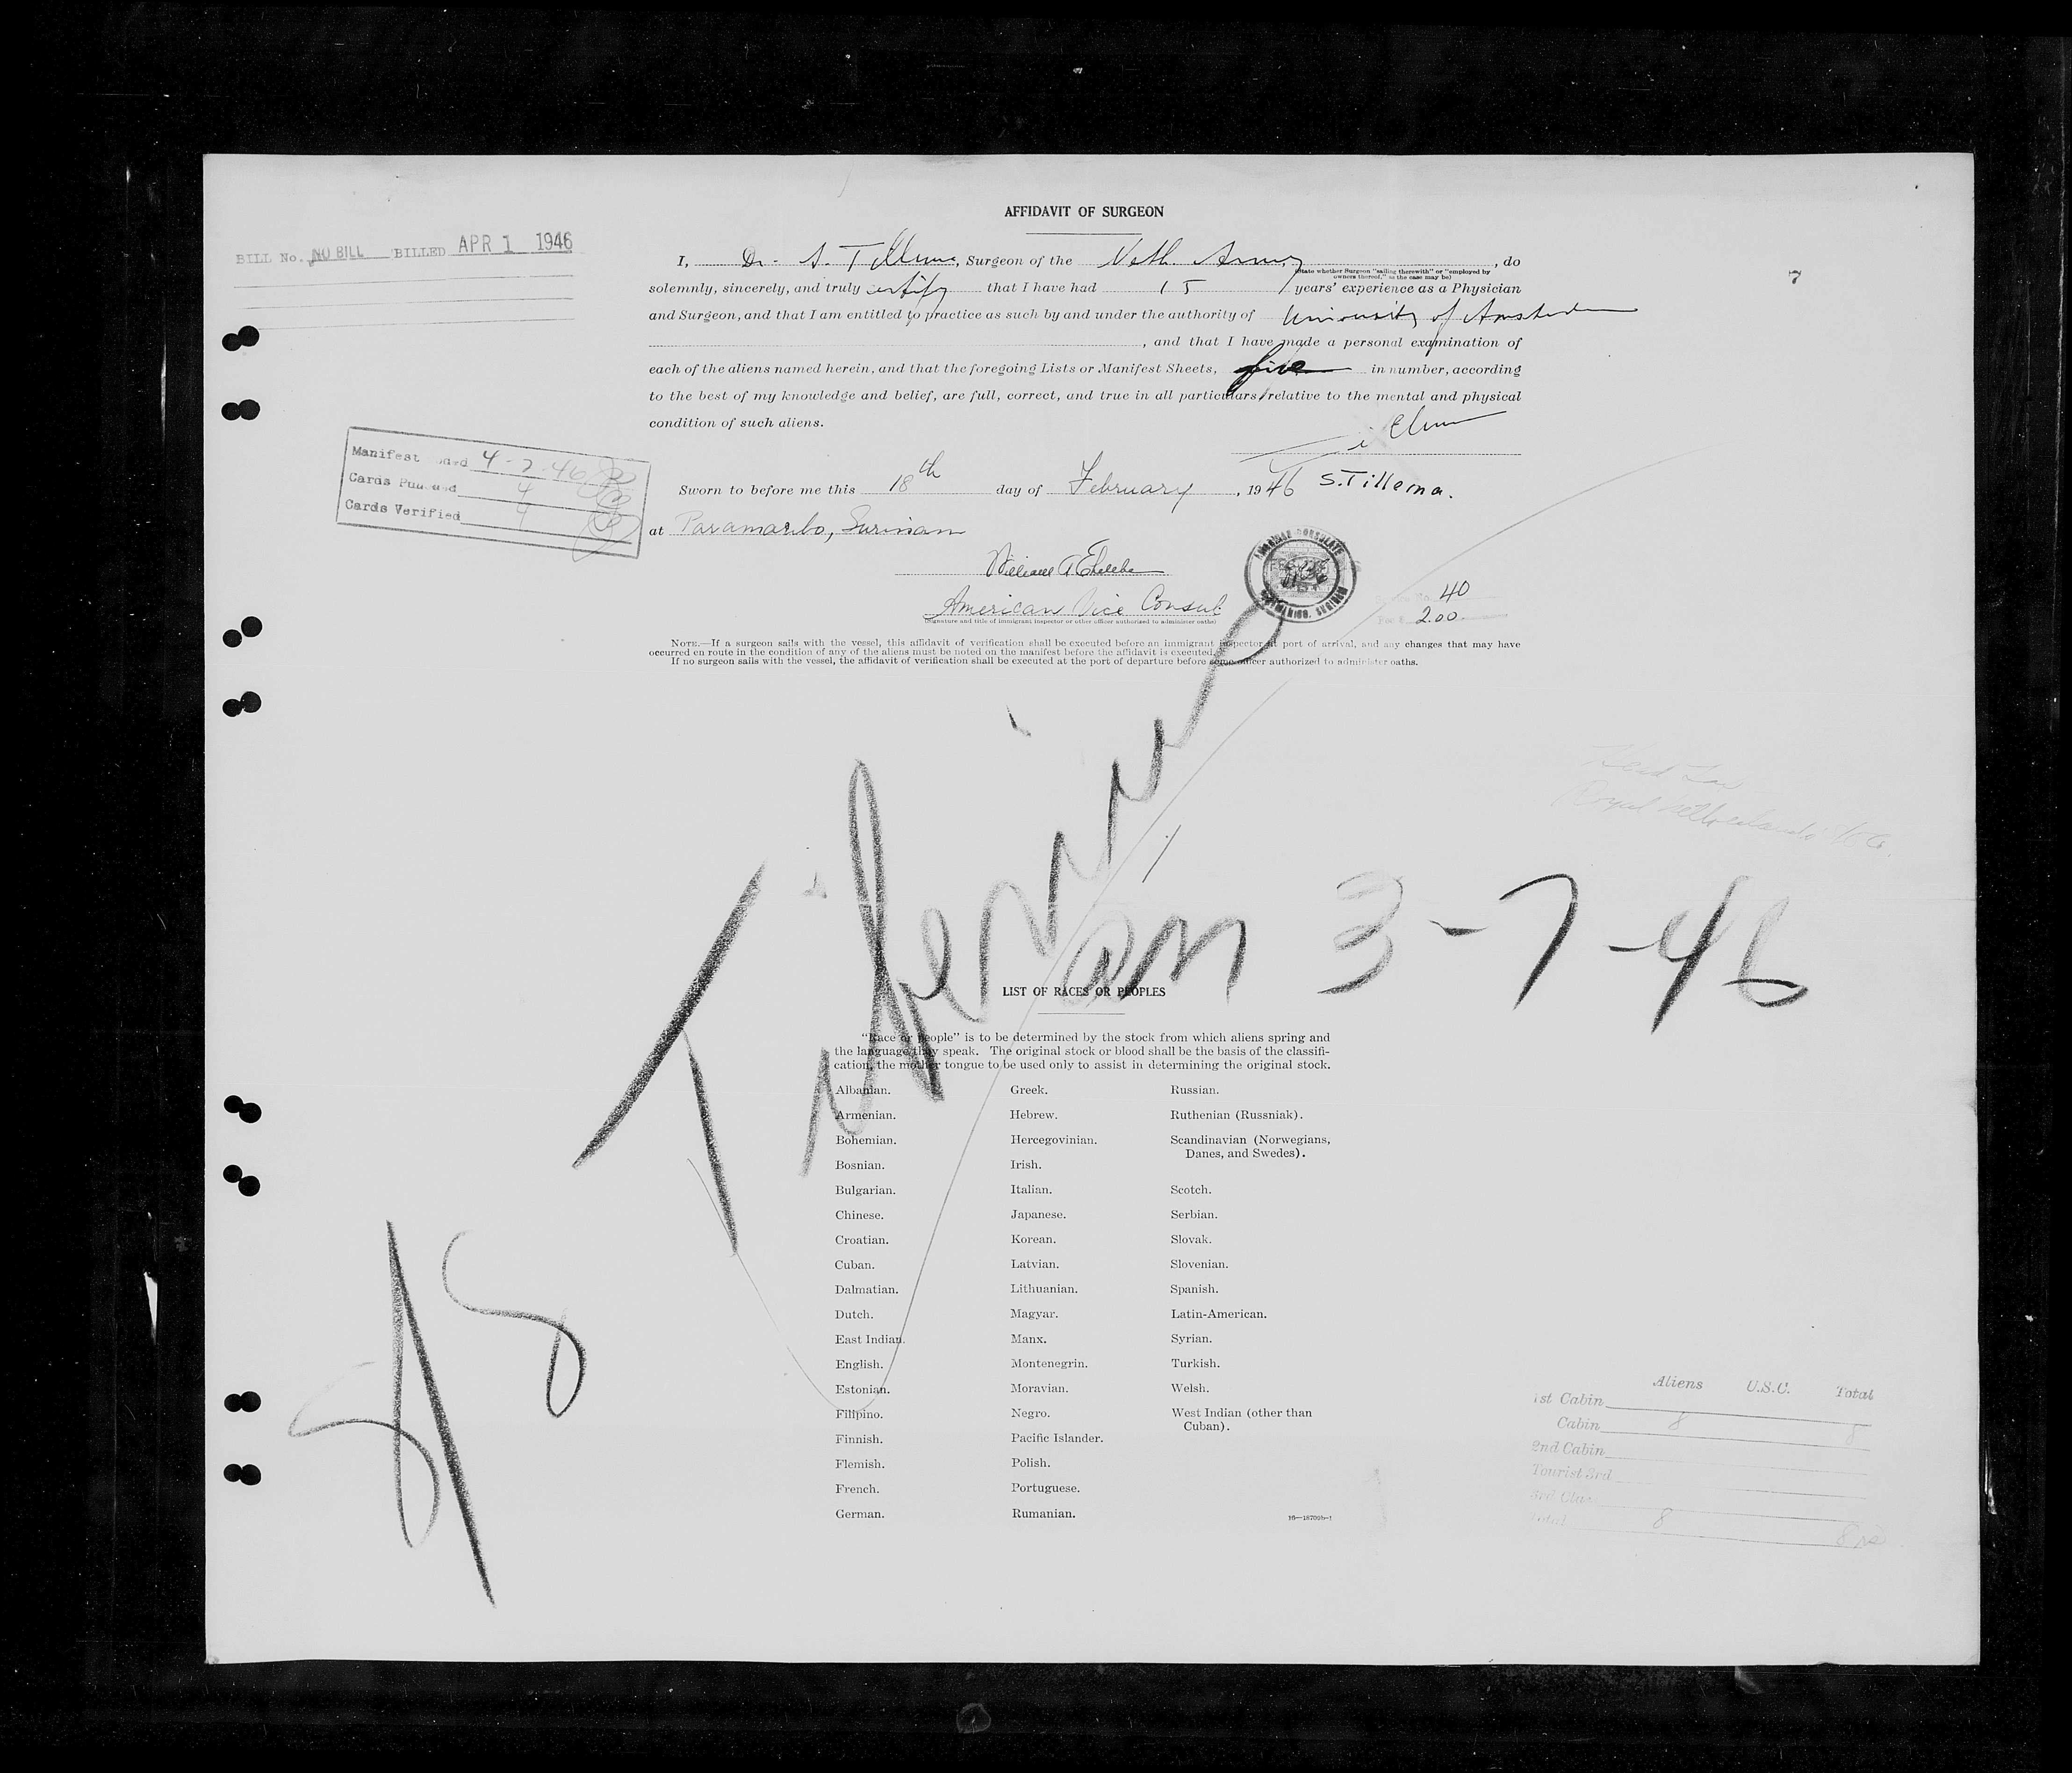 AFFIDAVIT OF SURGEON
BILL No. NO BILL BILLED APR 1 1946
7
I, Dr. S. Tillema, Surgeon of the Neth. Army, do
(State whether Surgeon "sailing therewith" or "employed by
owners thereof," as the case may be)
solemnly, sincerely, and truly certify that I have had 15 years' experience as a Physician
and Surgeon, and that I am entitled to practice as such by and under the authority of University of Amsterdam
, and that I have made a personal examination of
each of the aliens named herein, and that the foregoing Lists or Manifest Sheets, five in number, according
to the best of my knowledge and belief, are full, correct, and true in all particulars relative to the mental and physical
condition of such aliens.
Manifest 4-2-46
Cards Punched 4
Cards Verified 4
Sworn to before me this 18th day of February, 1946 S. Tillema.
at Paramaribo, Surinam
William
AMERICAN CONSULATE
PARAMARIBO, SURINAM
American Vice Consul
(Signature and title of immigrant inspector or other officer authorized to administer oaths)
40
Fee $ 2.00
NOTE.—If a surgeon sails with the vessel, this affidavit of verification shall be executed before an immigrant inspector at port of arrival, and any changes that may have
occurred en route in the condition of any of the aliens must be noted on the manifest before the affidavit is executed.
If no surgeon sails with the vessel, the affidavit of verification shall be executed at the port of departure before some officer authorized to administer oaths.
Royal Netherlands
SS
am 3-7-46
LIST OF RACES OR PEOPLES
"Race or people" is to be determined by the stock from which aliens spring and
the language they speak. The original stock or blood shall be the basis of the classifi-
cation, the mother tongue to be used only to assist in determining the original stock.
Albanian.
Armenian.
Bohemian.
Bosnian.
Bulgarian.
Chinese.
Croatian.
Cuban.
Dalmatian.
Dutch.
East Indian.
English.
Estonian.
Filipino.
Finnish.
Flemish.
French.
German.
Greek.
Hebrew.
Hercegovinian.
Irish.
Italian.
Japanese.
Korean.
Latvian.
Lithuanian.
Magyar.
Manx.
Montenegrin.
Moravian.
Negro.
Pacific Islander.
Polish.
Portuguese.
Rumanian.
Russian.
Ruthenian (Russniak).
Scandinavian (Norwegians,
Danes, and Swedes).
Scotch.
Serbian.
Slovak.
Slovenian.
Spanish.
Latin-American.
Syrian.
Turkish.
Welsh.
West Indian (other than
Cuban).
Aliens U.S.C. Total
1st Cabin
Cabin 8 8
2nd Cabin
Tourist 3rd
3rd Class
Total 8 8